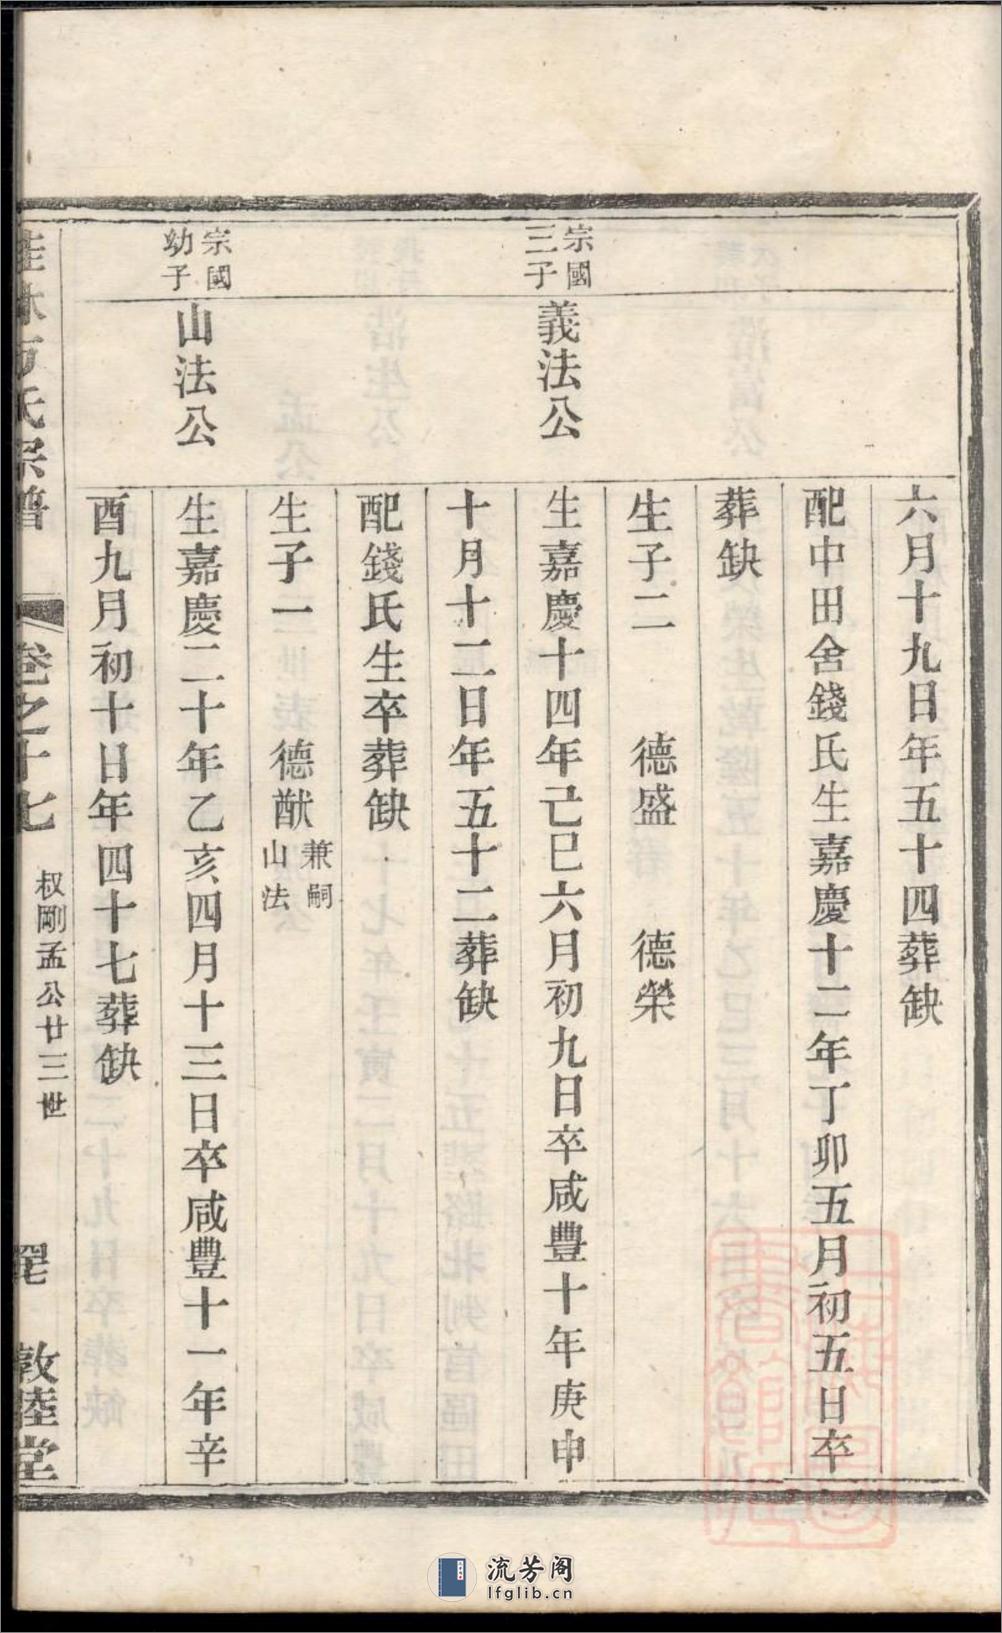 六月十九日年五十四葬缺
配中田舍錢氏生嘉慶十二年丁卯五月初五日卒
葬缺
生子二 德盛 德榮
宗國三子
義法公
生嘉慶十四年己巳六月初九日卒咸豐十年庚申
十月十二日年五十二葬缺
配錢氏生卒葬缺
生子一 德猷兼嗣山法
宗國幼子
山法公
生嘉慶二十年乙亥四月十三日卒咸豐十一年辛
酉九月初十日年四十七葬缺
氏宗譜
卷之十七
叔剛孟公廿三世
敦睦堂
流芳阁
lfglib.cn